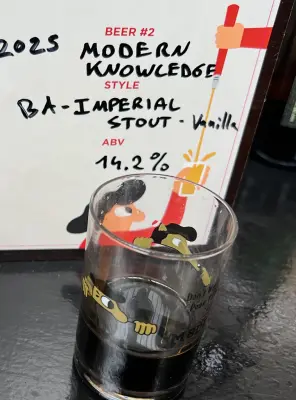 BEER #2
2025 MODERN
KNOWLEDGE
STYLE
BA-IMPERIAL
STOUT - Vanilla
ABV
14.2%